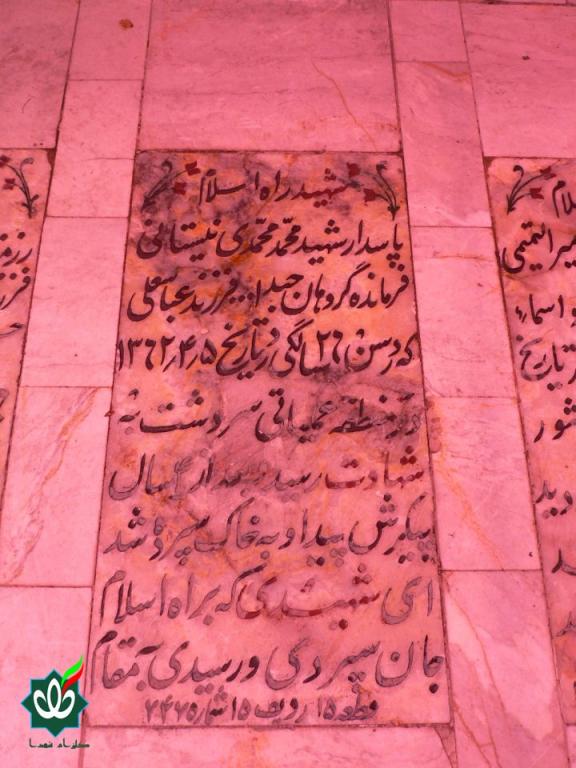 شهید راه اسلام
پاسدار شهید محمد محمدی نیستانی
فرمانده گروهان جندا... فرزند عباسعلی
که در سن ۲۶ سالگی در تاریخ ۱۳۶۲٫۴٫۵
در منطقه عملیاتی سردشت به
شهادت رسید و بعد از ۴ سال
پیکرش پیدا و به خاک سپرده شد
ای شهیدی که براه اسلام
جان سپردی و رسیدی به مقام
قطعه ۱۵ ردیف ۱۵ شماره ۲۴۶
لام
میر التمیمی
و اسماء
تاریخ
شور
گلزار شهدا